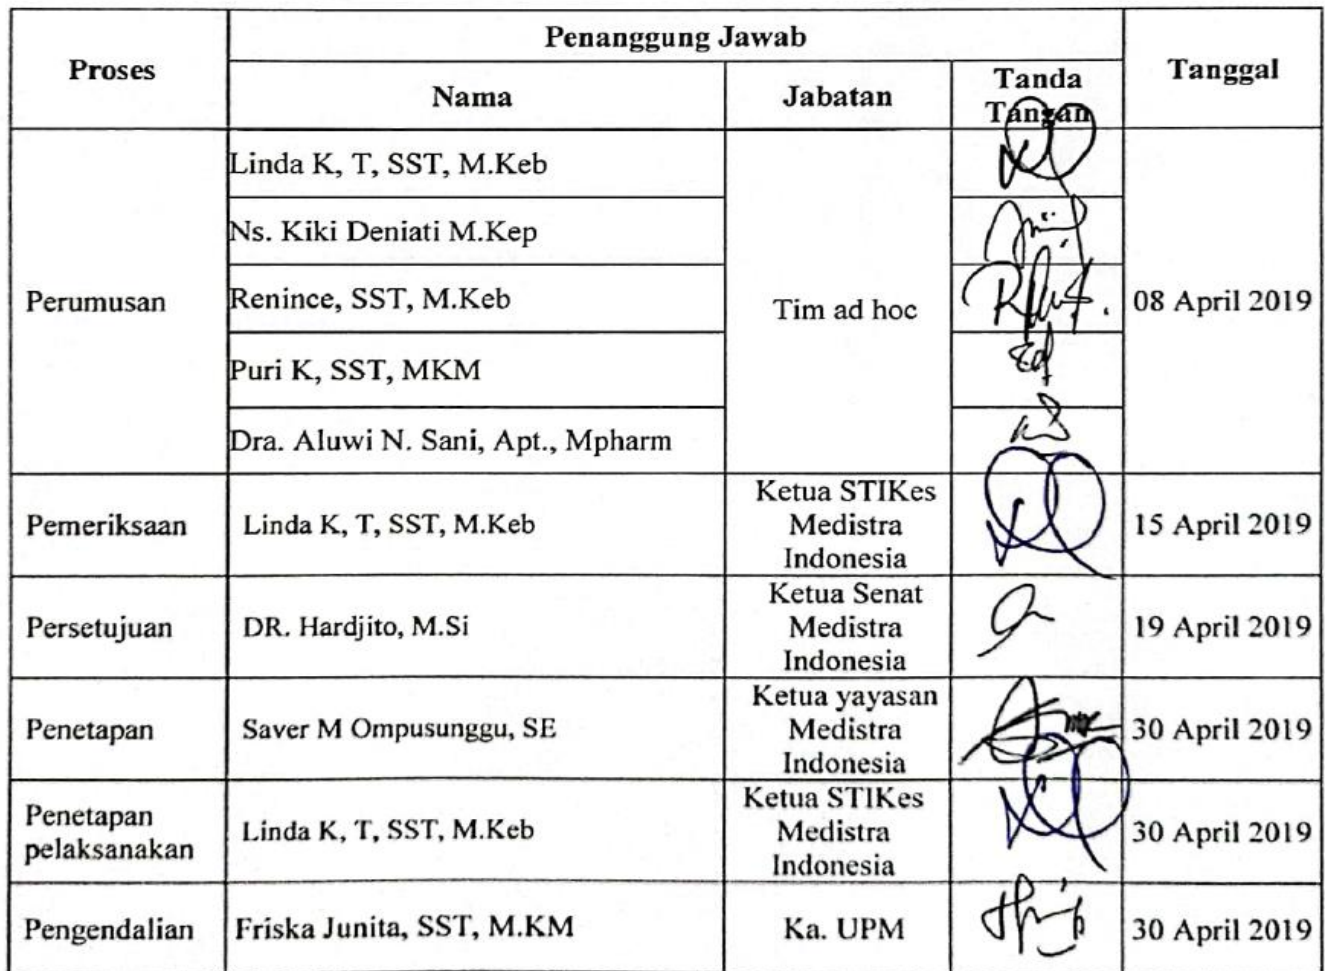 Proses
Penanggung Jawab
Tanggal
Nama
Jabatan
Tanda
Tangan
Perumusan
Linda K, T, SST, M.Keb
Ns. Kiki Deniati M.Kep
Renince, SST, M.Keb
Puri K, SST, MKM
Dra. Aluwi N. Sani, Apt., Mpharm
Tim ad hoc
08 April 2019
Pemeriksaan
Linda K, T, SST, M.Keb
Ketua STIKes
Medistra
Indonesia
15 April 2019
Persetujuan
DR. Hardjito, M.Si
Ketua Senat
Medistra
Indonesia
19 April 2019
Penetapan
Saver M Ompusunggu, SE
Ketua yayasan
Medistra
Indonesia
30 April 2019
Penetapan
pelaksanakan
Linda K, T, SST, M.Keb
Ketua STIKes
Medistra
Indonesia
30 April 2019
Pengendalian
Friska Junita, SST, M.KM
Ka. UPM
30 April 2019